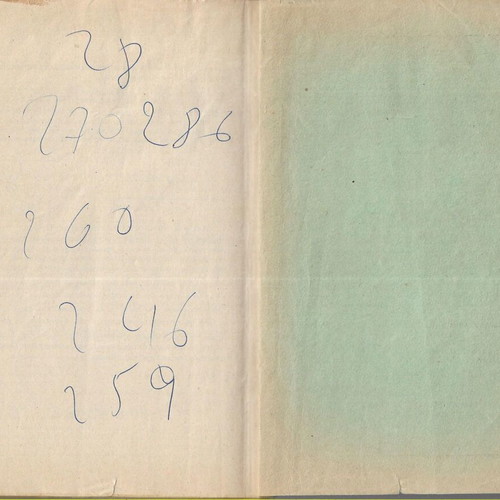 28
270 286
260
246
259